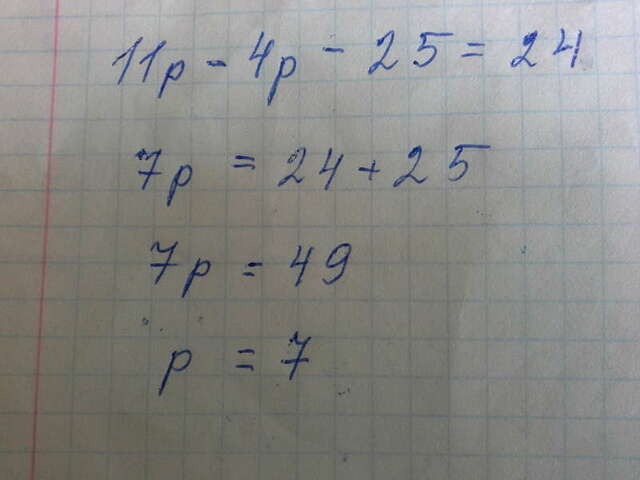 11p - 4p - 25 = 24
7p = 24 + 25
7p = 49
p = 7